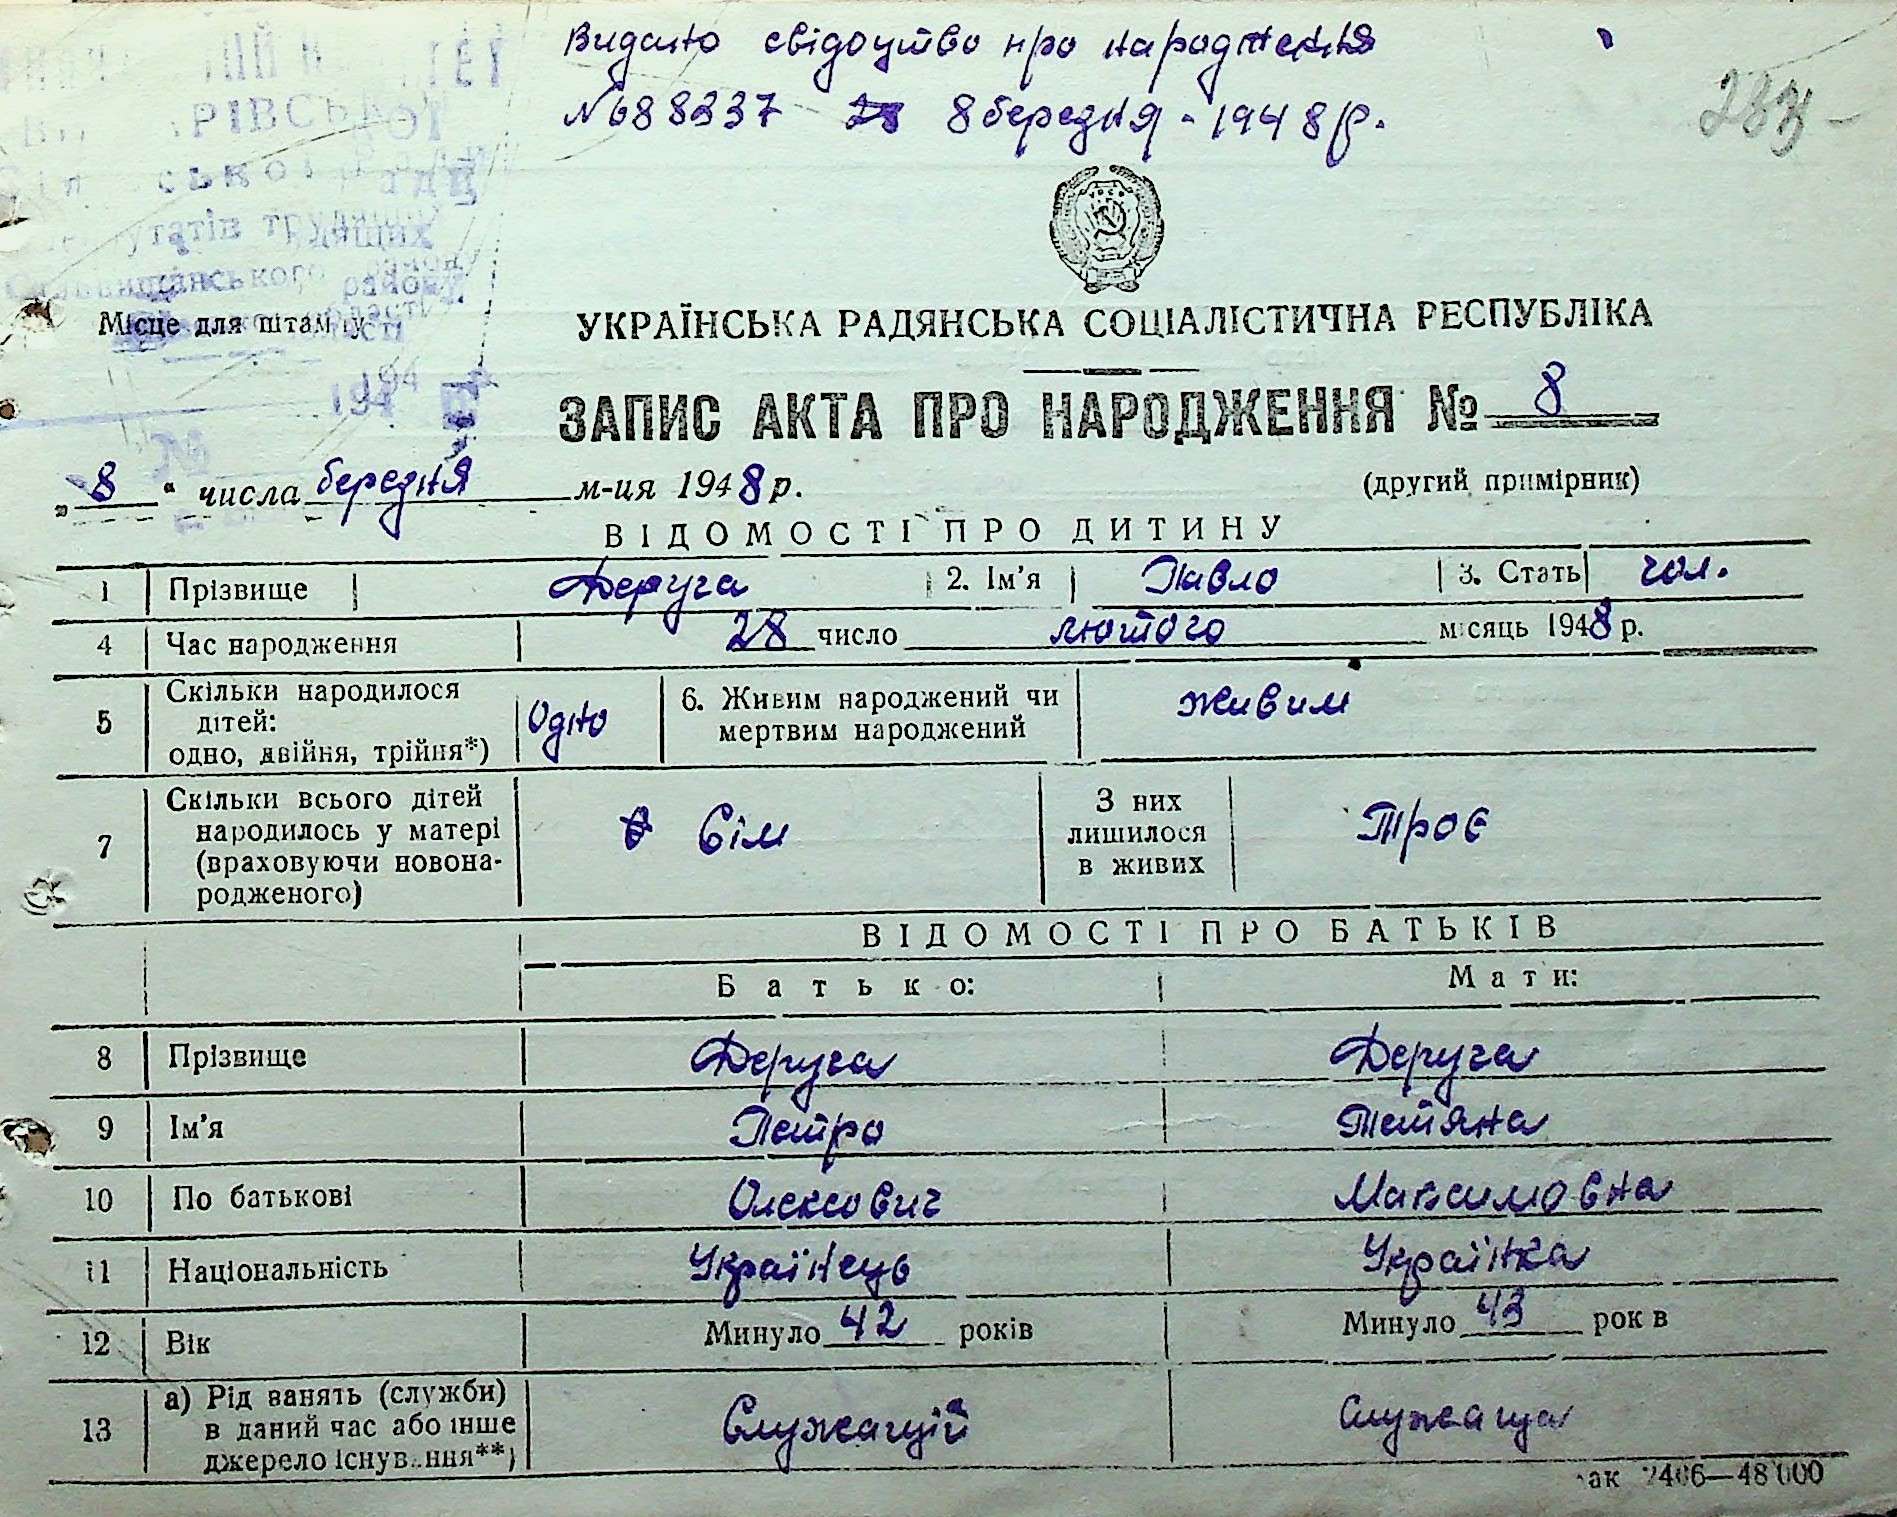 Видано свідоцтво про народження
№688237 8 березня - 1948 р.
283
РІВСЬКОЇ
трудящих
району
Місце для штампу
194
УКРАЇНСЬКА РАДЯНСЬКА СОЦІАЛІСТИЧНА РЕСПУБЛІКА
ЗАПИС АКТА ПРО НАРОДЖЕННЯ № 8
„8“ числа березня м-ця 1948 р. (другий примірник)
ВІДОМОСТІ ПРО ДИТИНУ
1 Прізвище Деруга 2. Ім’я Павло 3. Стать чол.
4 Час народження 28 число лютого місяць 1948 р.
5 Скільки народилося дітей: одно, двійня, трійня*) Одно 6. Живим народжений чи мертвим народжений живим
7 Скільки всього дітей народилось у матері (враховуючи новонародженого) Сім З них лишилося в живих Троє
ВІДОМОСТІ ПРО БАТЬКІВ
Батько: Мати:
8 Прізвище Деруга Деруга
9 Ім’я Петро Тетяна
10 По батькові Олексович Максимовна
11 Національність Українець Українка
12 Вік Минуло 42 років Минуло 43 рок в
13 а) Рід занять (служби) в даний час або інше джерело існування**) Служащій Служаща
ак 2406—48 000